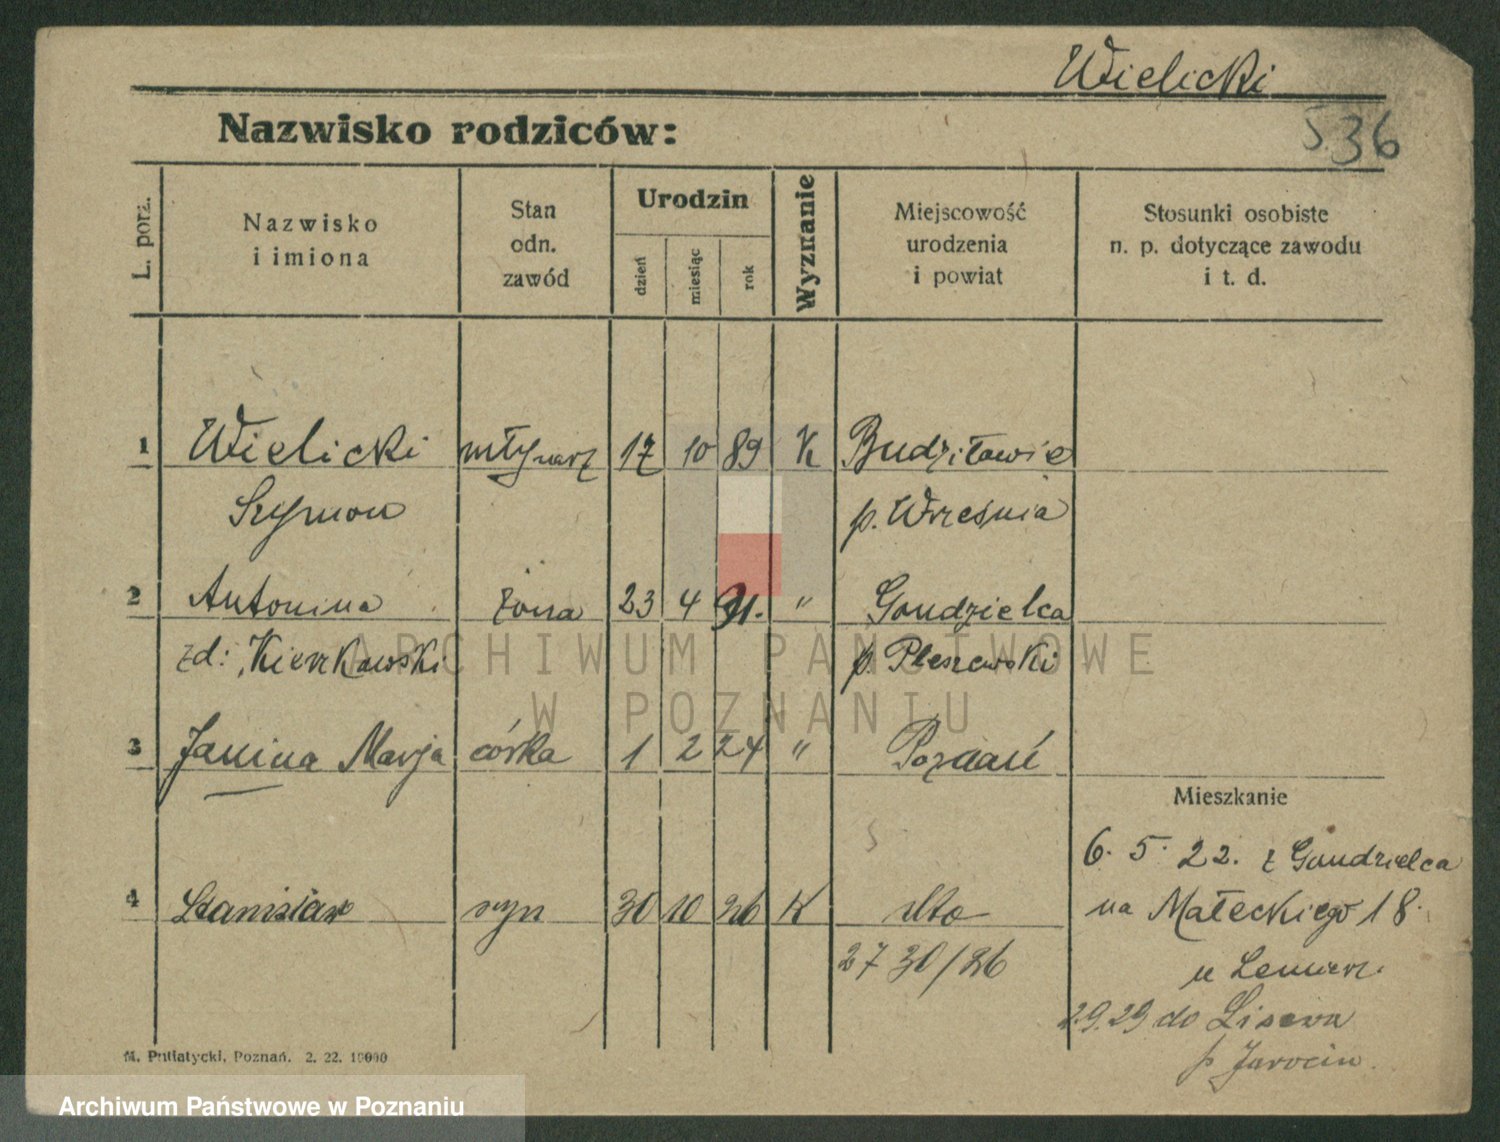 Wielicki
Nazwisko rodziców:
36
L. porz.
Nazwisko
i imiona
Stan
odn.
zawód
Urodzin
dzień
miesiąc
rok
Wyznanie
Miejscowość
urodzenia
i powiat
Stosunki osobiste
n. p. dotyczące zawodu
i t. d.
1 Wielicki młynarz 17 10 89 K Budziłowie
Szymon p. Września
2 Antonina żona 23 4 91. " Goudzielca
zd: Kierzkowski p. Pleszewski
3 Janina Marja córka 1 2 24 " Poznań
Mieszkanie
6. 5. 22. z Goudzielca
4 Stanisław syn 30 10 26 K dto na Małeckiego 18.
2730/26 u
29.29 do Lisewa
p Jarocin.
M. Putiatycki, Poznań. 2. 22. 10000
ARCHIWUM PAŃSTWOWE
W POZNANIU
Archiwum Państwowe w Poznaniu